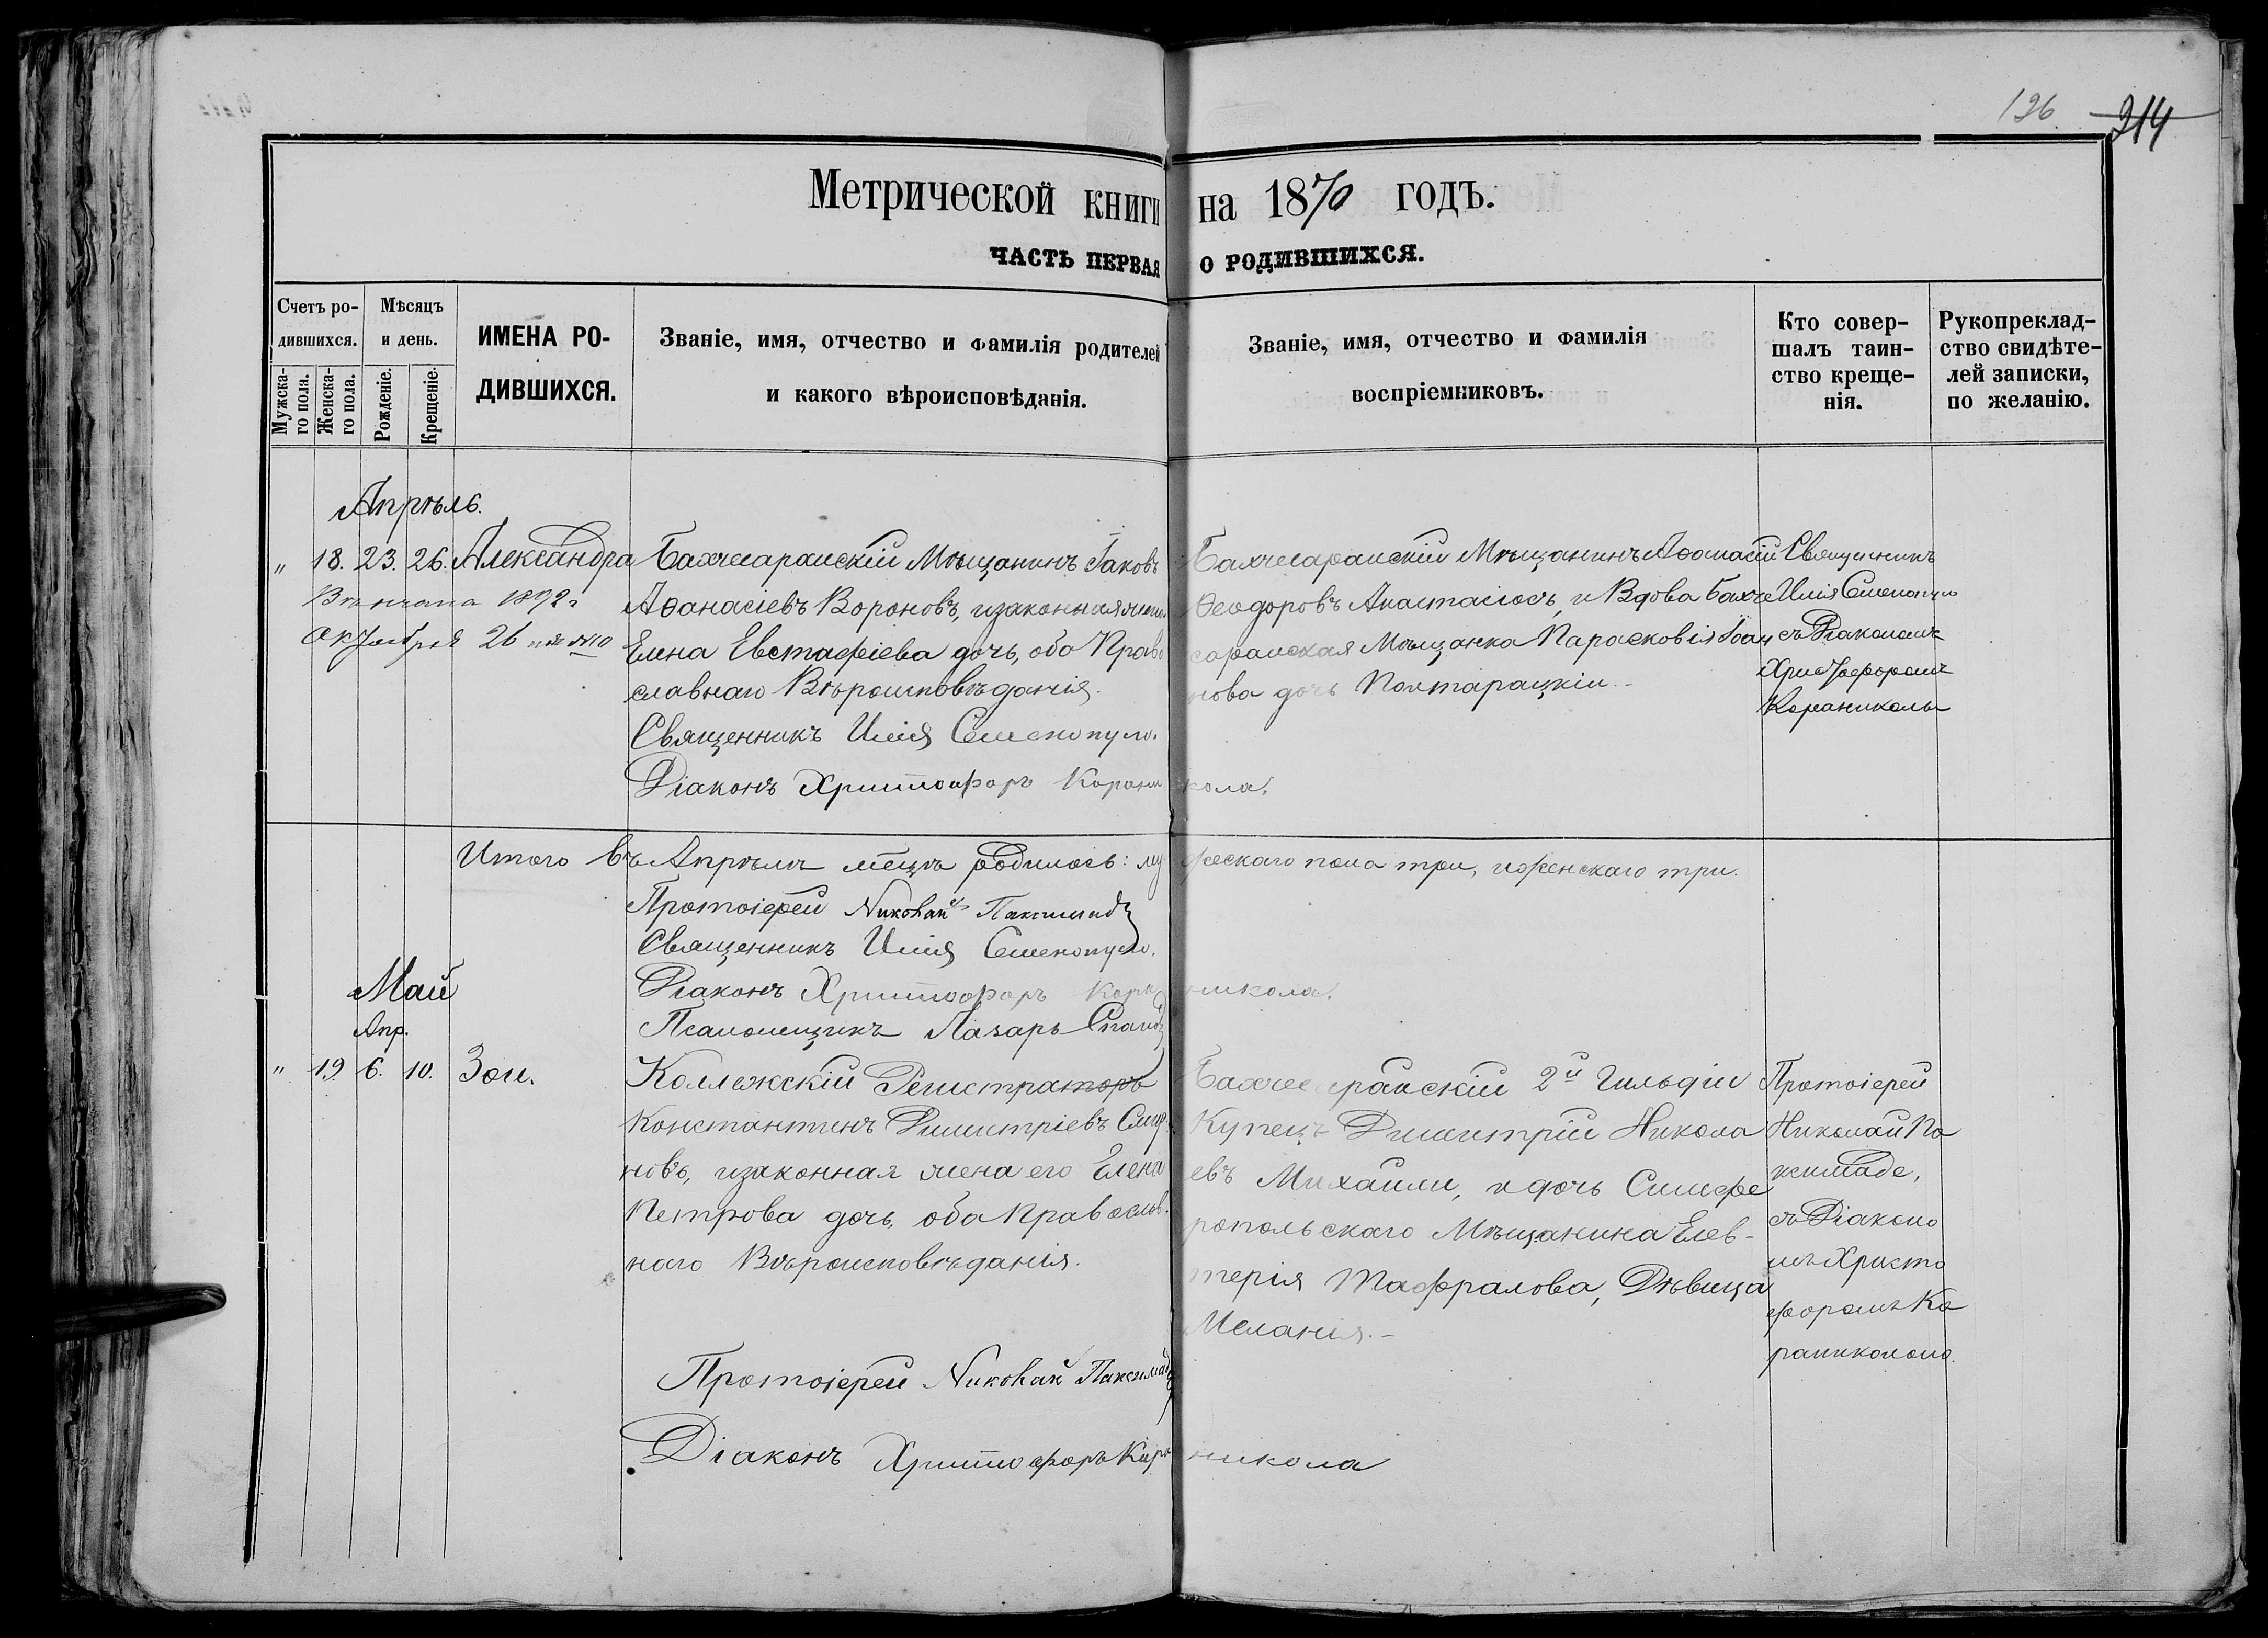 126 214
Метрической книги на 1870 годъ.
ЧАСТЬ ПЕРВАЯ О РОДИВШИХСЯ.
Счетъ ро-
дившихся.
Мужска-
го пола.
Женска-
го пола.
Мѣсяцъ
и день.
Рожденіе.
Крещеніе.
ИМЕНА РО-
ДИВШИХСЯ.
Званіе, имя, отчество и фамилія родителей
и какого вѣроисповѣданія.
Званіе, имя, отчество и фамилія
воспріемниковъ.
Кто совер-
шалъ таин-
ство креще-
нія.
Рукопреклад-
ство свидѣте-
лей записки,
по желанію.
Апрѣль.
" 18. 23. 26. Александра
Вѣнчана 1892 г
Октября 26
Бахчесарайскій Мѣщанинъ Іаковъ
Аѳанасіевъ Вороновъ, и законная жена
Елена Евстафіева дочь, оба Право
славнаго Вѣроисповѣданія.
Священникъ Илія Семенопуло.
Діаконъ Христофоръ Карани кола.
Бахчесарайскій Мѣщанинъ Аѳанасій
Ѳеодоровъ Анастасіовъ, и Вдова Бахче
сарайская Мѣщанка Парасковія Іоан
нова дочь Полтарацкіи. -
Священникъ
Илія Семенопуло
съ Діакономъ
Христофоромъ
Караниколы
Итого въ Апрѣлѣ мѣцѣ родилось: му жескаго пола три, и женскаго три.
Протоіерей Николай Паксимади
Священникъ Илія Семенопуло.
Діаконъ Христофоръ Кара никола.
Псаломщикъ Лазарь
Май
Апр.
" 19. 6. 10. Зои.
Коллежскій Регистраторъ
Константинъ Димитріевъ Смир
новъ, и законная жена его Елена
Петрова дочь, оба Православ.
наго Вѣроисповѣданія.
Протоіерей Николай Паксимади
Діаконъ Христофоръ Кара никола
Бахчесарайскій 2й Гильдіи
Купецъ Димитрій Никола
евъ Михайли, и дочь Симфе
ропольскаго Мѣщанина Елев-
терія Тафралова, Дѣвица
Меланія. -
Протоіерей
Николай Па
ксимаде,
съ Діаконо
мъ Христо
форомъ Ка
раниколою.